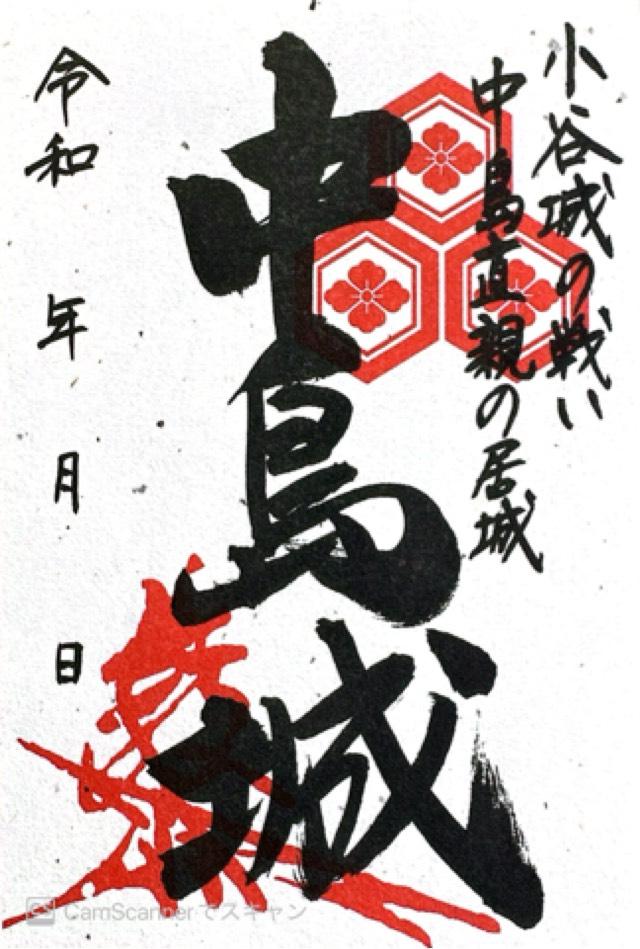 小谷城の戦い
中島直親の居城
中島城
令和 年 月 日
CS CamScannerでスキャン